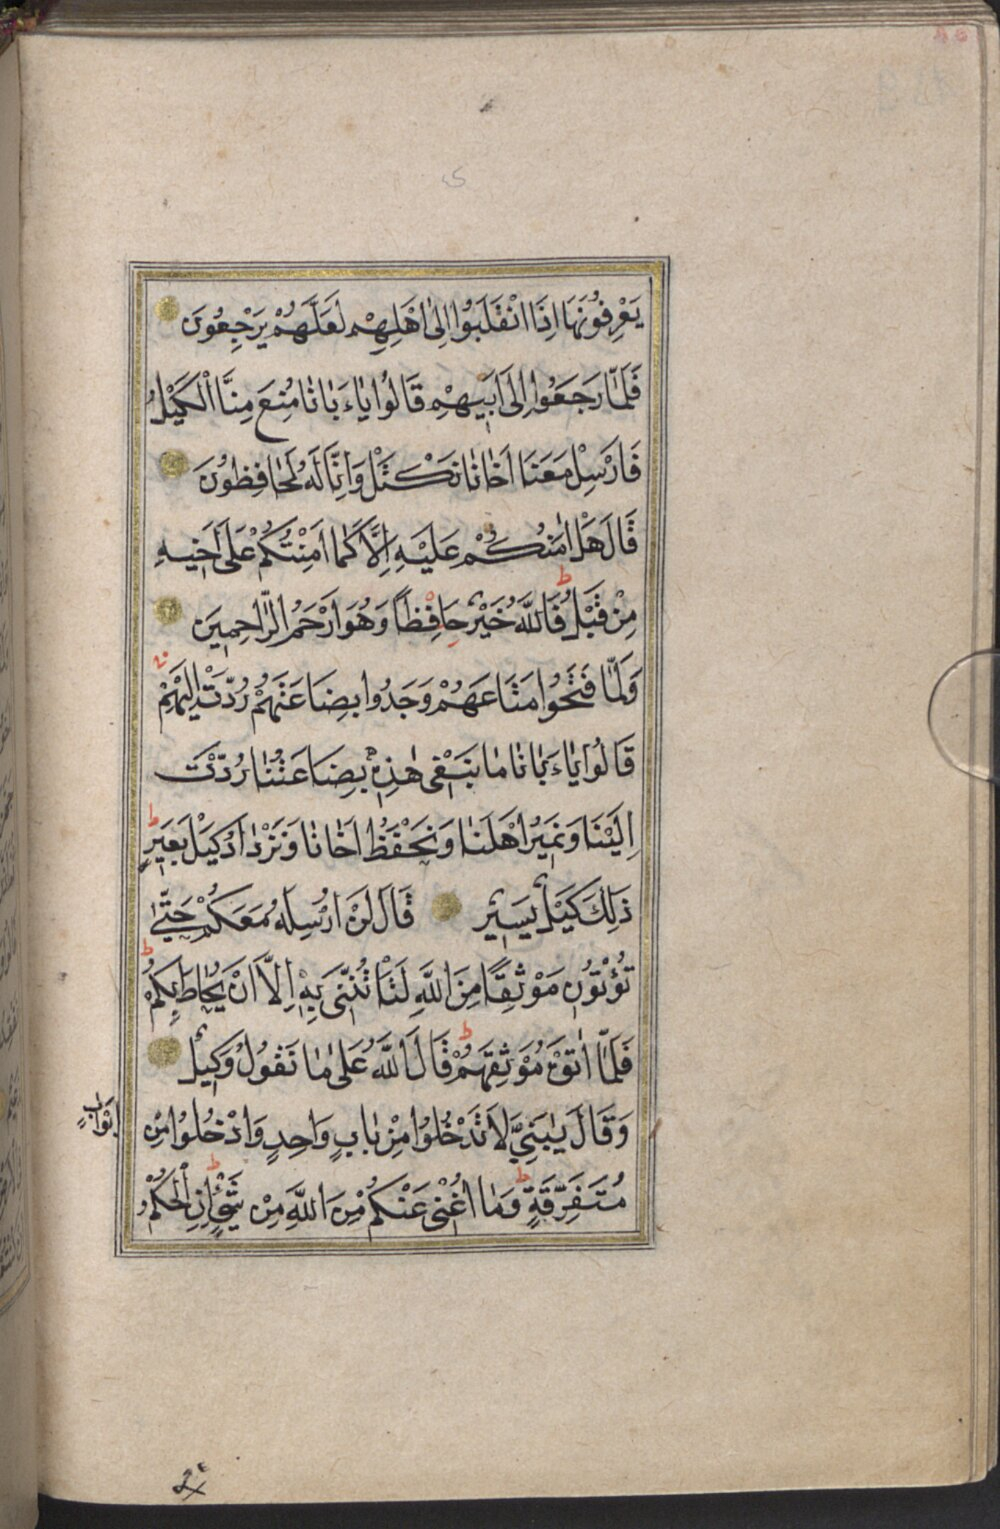 يَعْرِفُونَهَا اِذَا انْقَلَبُوا اِلٰى اَهْلِهِمْ لَعَلَّهُمْ يَرْجِعُونَ
فَلَمَّا رَجَعُوا اِلٰى اَبِيهِمْ قَالُوا يَاءَبَانَا مُنِعَ مِنَّا الْكَيْلُ
فَاَرْسِلْ مَعَنَا اَخَانَا نَكْتَلْ وَاِنَّا لَهُ لَحَافِظُونَ
قَالَ هَلْ اٰمَنُكُمْ عَلَيْهِ اِلَّا كَمَا اَمِنْتُكُمْ عَلٰى اَخِيهِ
مِنْ قَبْلُ فَاللَّهُ خَيْرٌ حَافِظًا وَهُوَ اَرْحَمُ الرَّاحِمِينَ
وَلَمَّا فَتَحُوا مَتَاعَهُمْ وَجَدُوا بِضَاعَتَهُمْ رُدَّتْ اِلَيْهِمْ
قَالُوا يَاءَبَانَا مَا نَبْغِى هٰذِهِ بِضَاعَتُنَا رُدَّتْ
اِلَيْنَا وَنَمِيرُ اَهْلَنَا وَنَحْفَظُ اَخَانَا وَنَزْدَادُ كَيْلَ بَعِيرٍ
ذَلِكَ كَيْلٌ يَسِيرٌ قَالَ لَنْ اُرْسِلَهُ مَعَكُمْ حَتّٰى
تُؤْتُونِ مَوْثِقًا مِنَ اللَّهِ لَتَأْتُنَّنِى بِهِ اِلَّا اَنْ يُحَاطَ بِكُمْ
فَلَمَّا اٰتَوْهُ مَوْثِقَهُمْ قَالَ اللَّهُ عَلٰى مَا نَقُولُ وَكِيلٌ
وَقَالَ يٰبَنِىَّ لَا تَدْخُلُوا مِنْ بَابٍ وَاحِدٍ وَادْخُلُوا مِنْ
اَبْوَابٍ
مُتَفَرِّقَةٍ وَمَا اُغْنِى عَنْكُمْ مِنَ اللَّهِ مِنْ شَىْءٍ اِنِ الْحُكْمُ